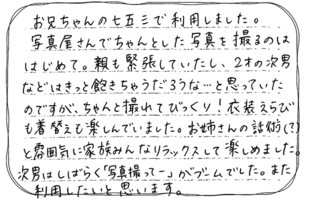 お兄ちゃんの七五三で利用しました。
写真屋さんでちゃんとした写真を撮るのは
はじめて。親も緊張していたし、2才の次男
などはきっと飽きちゃうだろうな…と思っていた
のですが、ちゃんと撮れてびっくり!衣装えらび
も着替えも楽しんでいました。お姉さんの話術(?)
と雰囲気に家族みんなリラックスして楽しめました。
次男はしばらく「写真撮ってー」がブームでした。また
利用したいと思います。